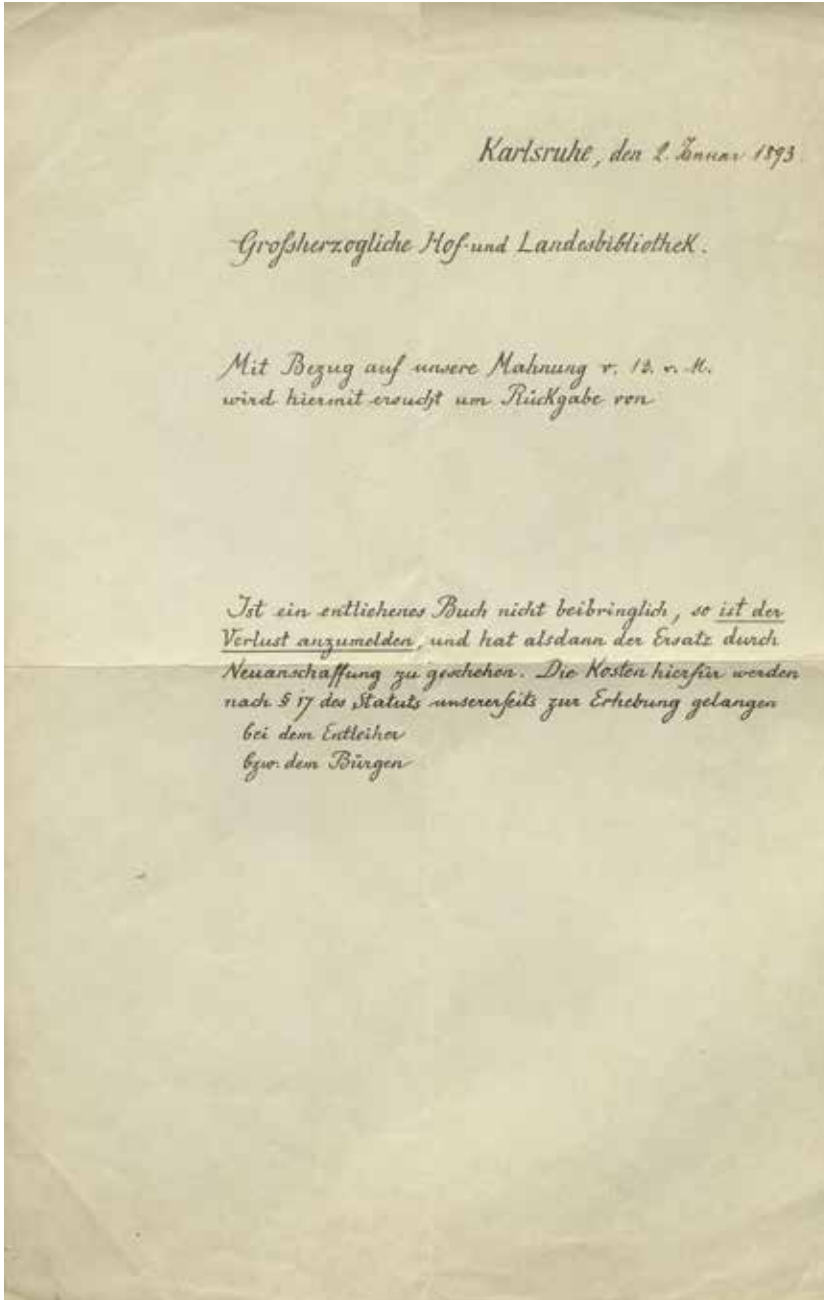 Karlsruhe, den 2. Januar 1893.
Großherzogliche Hof- und Landesbibliothek.
Mit Bezug auf unsere Mahnung v. 12. v. M.
wird hiermit ersucht um Rückgabe von
Ist ein entliehenes Buch nicht beibringlich, so ist der
Verlust anzumelden, und hat alsdann der Ersatz durch
Neuanschaffung zu geschehen. Die Kosten hierfür werden
nach § 17 des Statuts unsererseits zur Erhebung gelangen
bei dem Entleiher
bzw. dem Bürgen